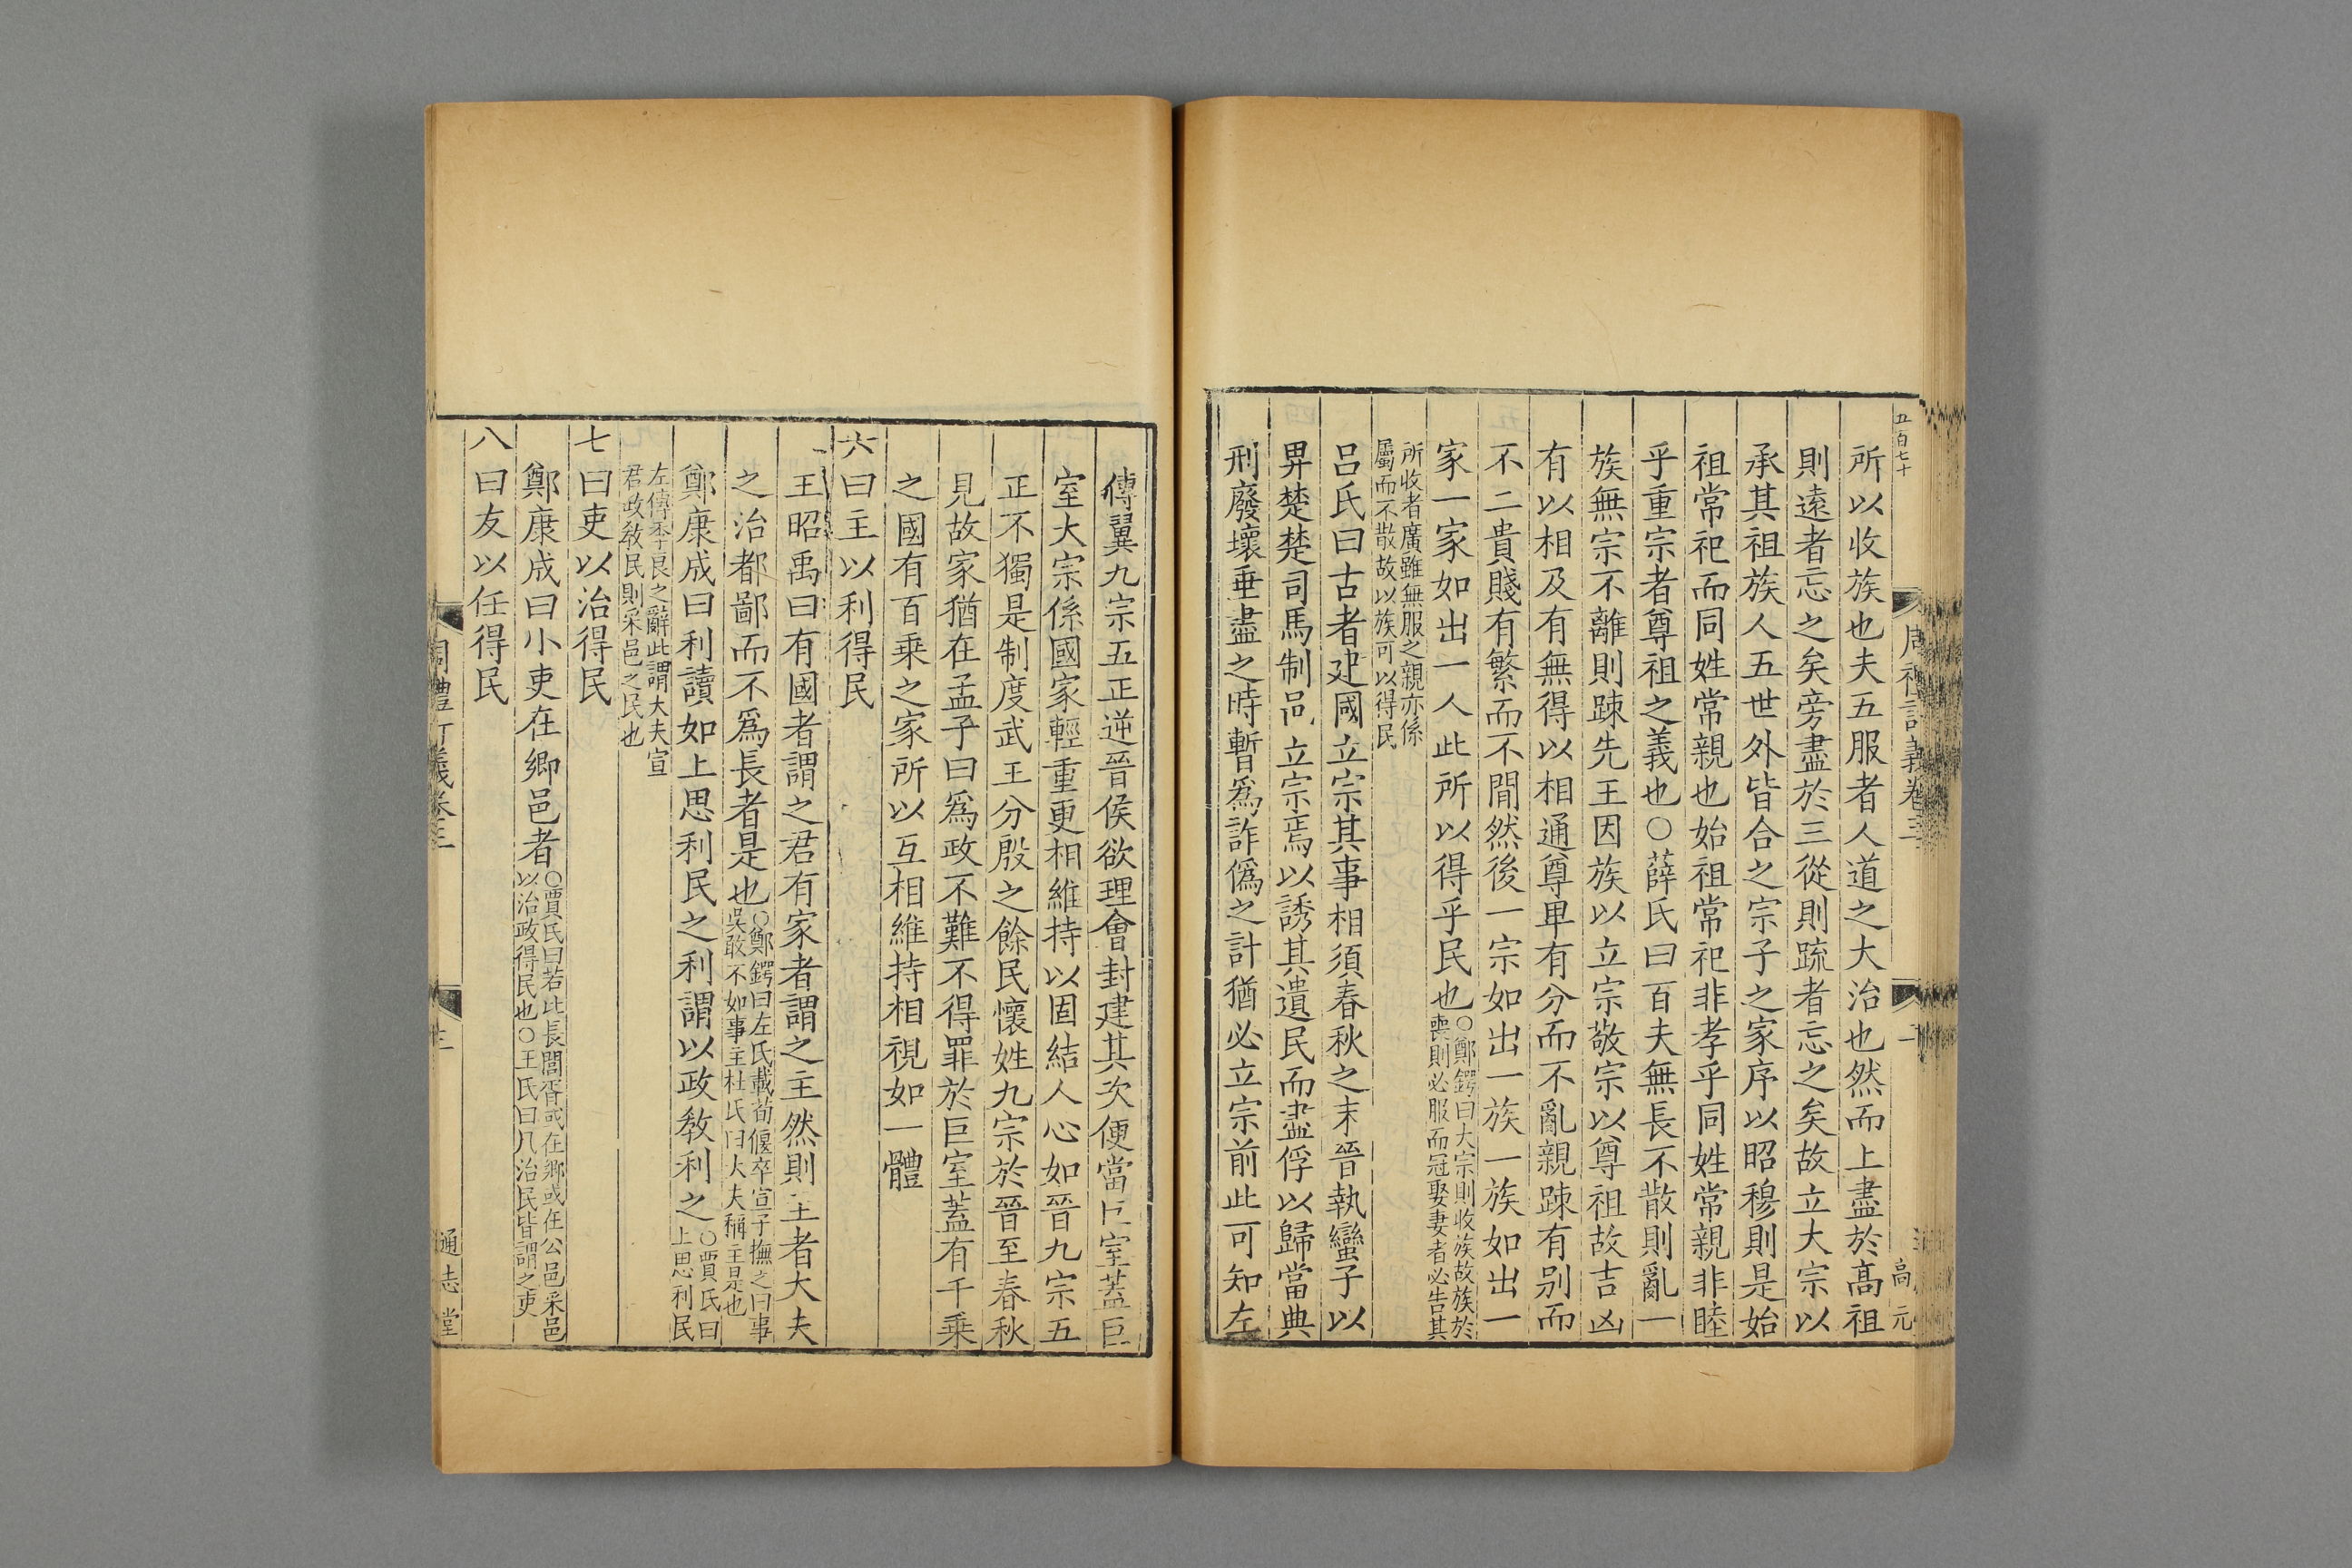 五百七十
周禮訂義卷三
高元
所以收族也夫五服者人道之大治也然而上盡於髙祖
則遠者忘之矣旁盡於三從則疏者忘之矣故立大宗以
承其祖族人五世外皆合之宗子之家序以昭穆則是始
祖常祀而同姓常親也始祖常祀非孝乎同姓常親非睦
乎重宗者尊祖之義也○薛氏曰百夫無長不散則亂一
族無宗不離則踈先王因族以立宗敬宗以尊祖故吉凶
有以相及有無得以相通尊卑有分而不亂親踈有別而
不二貴賤有繁而不閒然後一宗如出一族一族如出一
家一家如出一人此所以得乎民也○鄭鍔曰大宗則收族故族於
喪則必服而冠娶妻者必告其
所收者廣雖無服之親亦係
屬而不散故以族可以得民
呂氏曰古者建國立宗其事相須春秋之末晉執蠻子以
畀楚楚司馬制邑立宗焉以誘其遺民而盡俘以歸當典
刑廢壞垂盡之時暫為詐僞之計猶必立宗前此可知左
傳翼九宗五正逆晉侯欲理會封建其次便當巨室蓋巨
室大宗係國家輕重更相維持以固結人心如晉九宗五
正不獨是制度武王分殷之餘民懷姓九宗於晉至春秋
見故家猶在孟子曰爲政不難不得罪於巨室蓋有千乗
之國有百乗之家所以互相維持相視如一體
六曰主以利得民
王昭禹曰有國者謂之君有家者謂之主然則主者大夫
之治都鄙而不爲長者是也○鄭鍔曰左氏載荀偃卒宣子撫之曰事
吳敢不如事主杜氏曰大夫稱主是也
鄭康成曰利讀如上思利民之利謂以政敎利之○賈氏曰
上思利民
左傳季良之辭此謂大夫宣
君政敎民則采邑之民也
七曰吏以治得民
鄭康成曰小吏在鄉邑者○賈氏曰若比長閭胥或在鄉或在公邑采邑
以治政得民也○王氏曰凡治民皆謂之吏
八曰友以任得民
周禮訂義卷三
通志堂